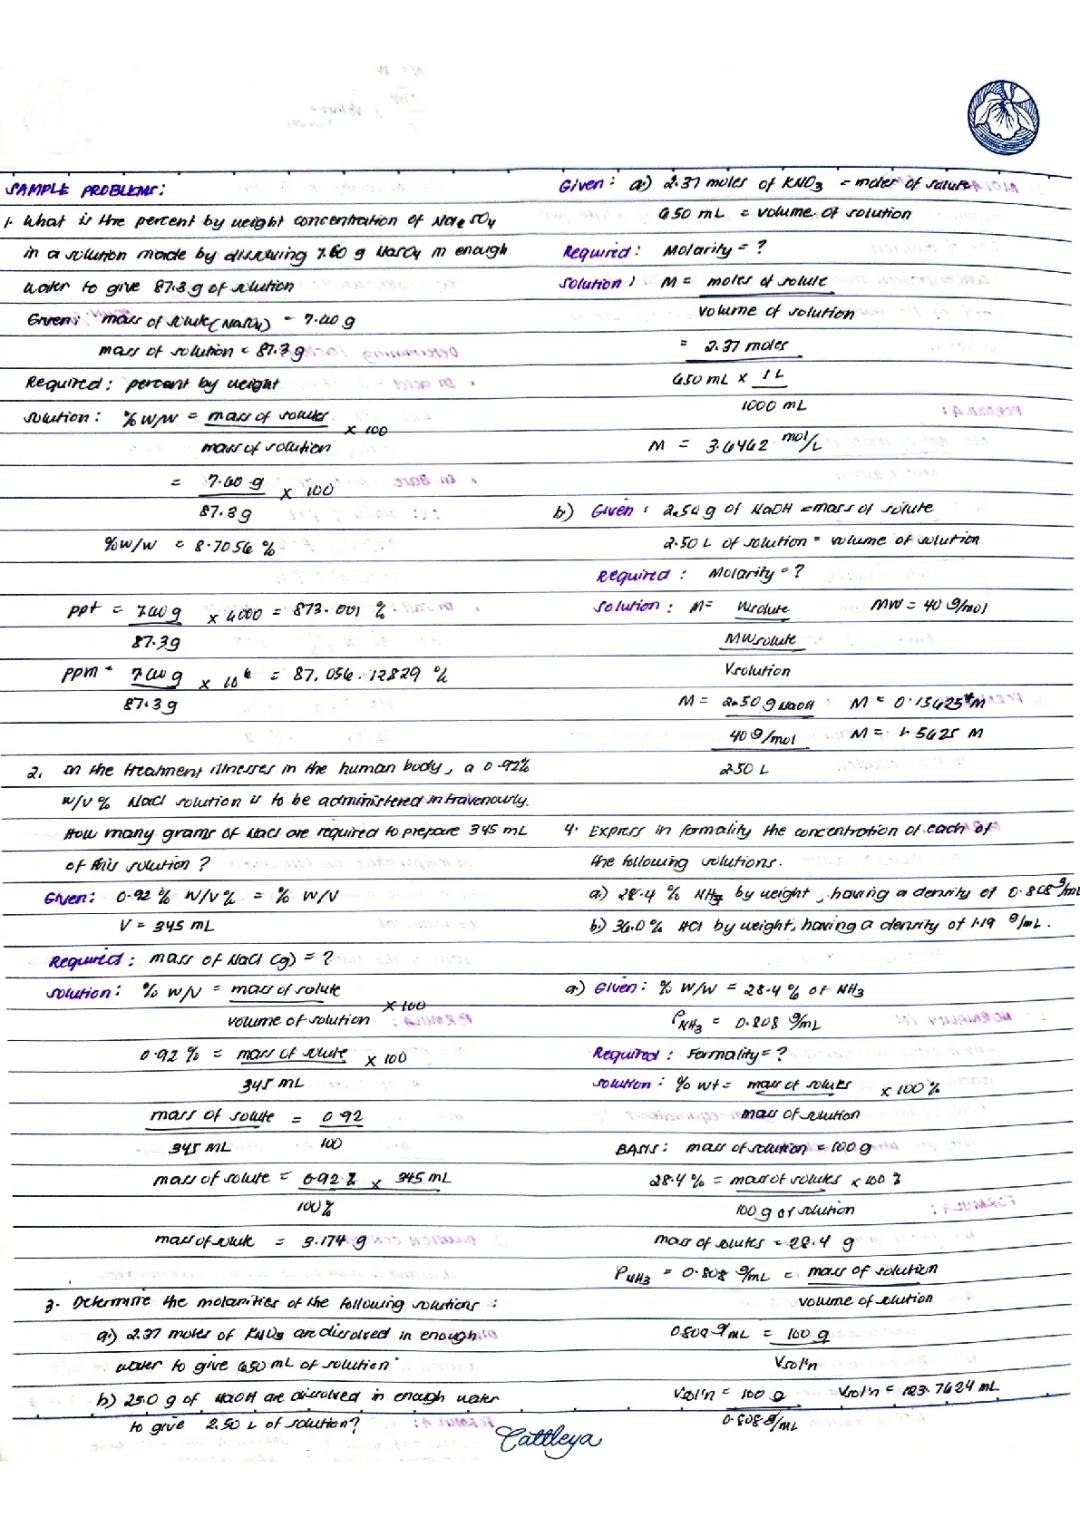 SAMPLE PROBLEMS:
1. What is the percent by weight concentration of
in a solution made by dissolving 7.60 g in enough
water to give 87.3 g of solution
Given: mass of solute = 7.60 g
mass of solution = 87.3 g
Required: percent by weight
Solution: % w/w = mass of solutes x 100
mass of solution
= 7.60 g x 100
87.3 g
% w/w = 8.7056 %
ppt = 7.60 g
87.3 g
ppm = 7.60 g x 10⁶ = 87,056.12829 %
87.3 g
2. In the treatment illnesses in the human body, a 0.92%
w/v % NaCl solution is to be administered intravenously.
How many grams of NaCl are required to prepare 345 mL
of this solution?
Given: 0.92 % w/v % = % w/v
V = 345 mL
Required: mass of NaCl (g) = ?
Solution: % w/v = mass of solute x 100
volume of solution
0.92 % = mass of solute x 100
345 mL
mass of solute = 0.92
345 mL 100
mass of solute = 0.92 % x 345 mL
100 %
mass of solute = 3.174 g
3. Determine the molarities of the following solutions:
a) 2.37 moles of KNO₃ are dissolved in enough
water to give 650 mL of solution
b) 25.0 g of NaOH are dissolved in enough water
to give 2.50 L of solution?
Given: a) 2.37 moles of KNO₃ = moles of solute
650 mL = volume of solution
Required: Molarity = ?
Solution: M = moles of solute
volume of solution
= 2.37 moles
650 mL x 1 L
1000 mL
M = 3.6462 mol/L
b) Given: g of NaOH = mass of solute
2.50 L of solution = volume of solution
Required: Molarity = ?
Solution: M = MW = 40 g/mol
MW solute
V solution
M = g NaOH
40 g/mol
2.50 L
4. Express in formality the concentration of each of
the following solutions.
a) 28.4 % NH₃ by weight, having a density of 0.808 g/mL
b) 36.0 % HCl by weight, having a density of 1.19 g/mL.
a) Given: % w/w = 28.4 % of NH₃
ρNH₃ = 0.808 g/mL
Required: Formality = ?
Solution: % wt = mass of solutes x 100 %
mass of solution
BASIS: mass of solution = 100 g
28.4 % = mass of solutes x 100 %
100 g of solution
mass of solutes = 28.4 g
ρNH₃ = 0.808 g/mL = mass of solution
volume of solution
0.808 g/mL = 100 g
Vsol'n
Vsol'n = 100 g Vsol'n = 123.7624 mL
0.808 g/mL
Cattleya